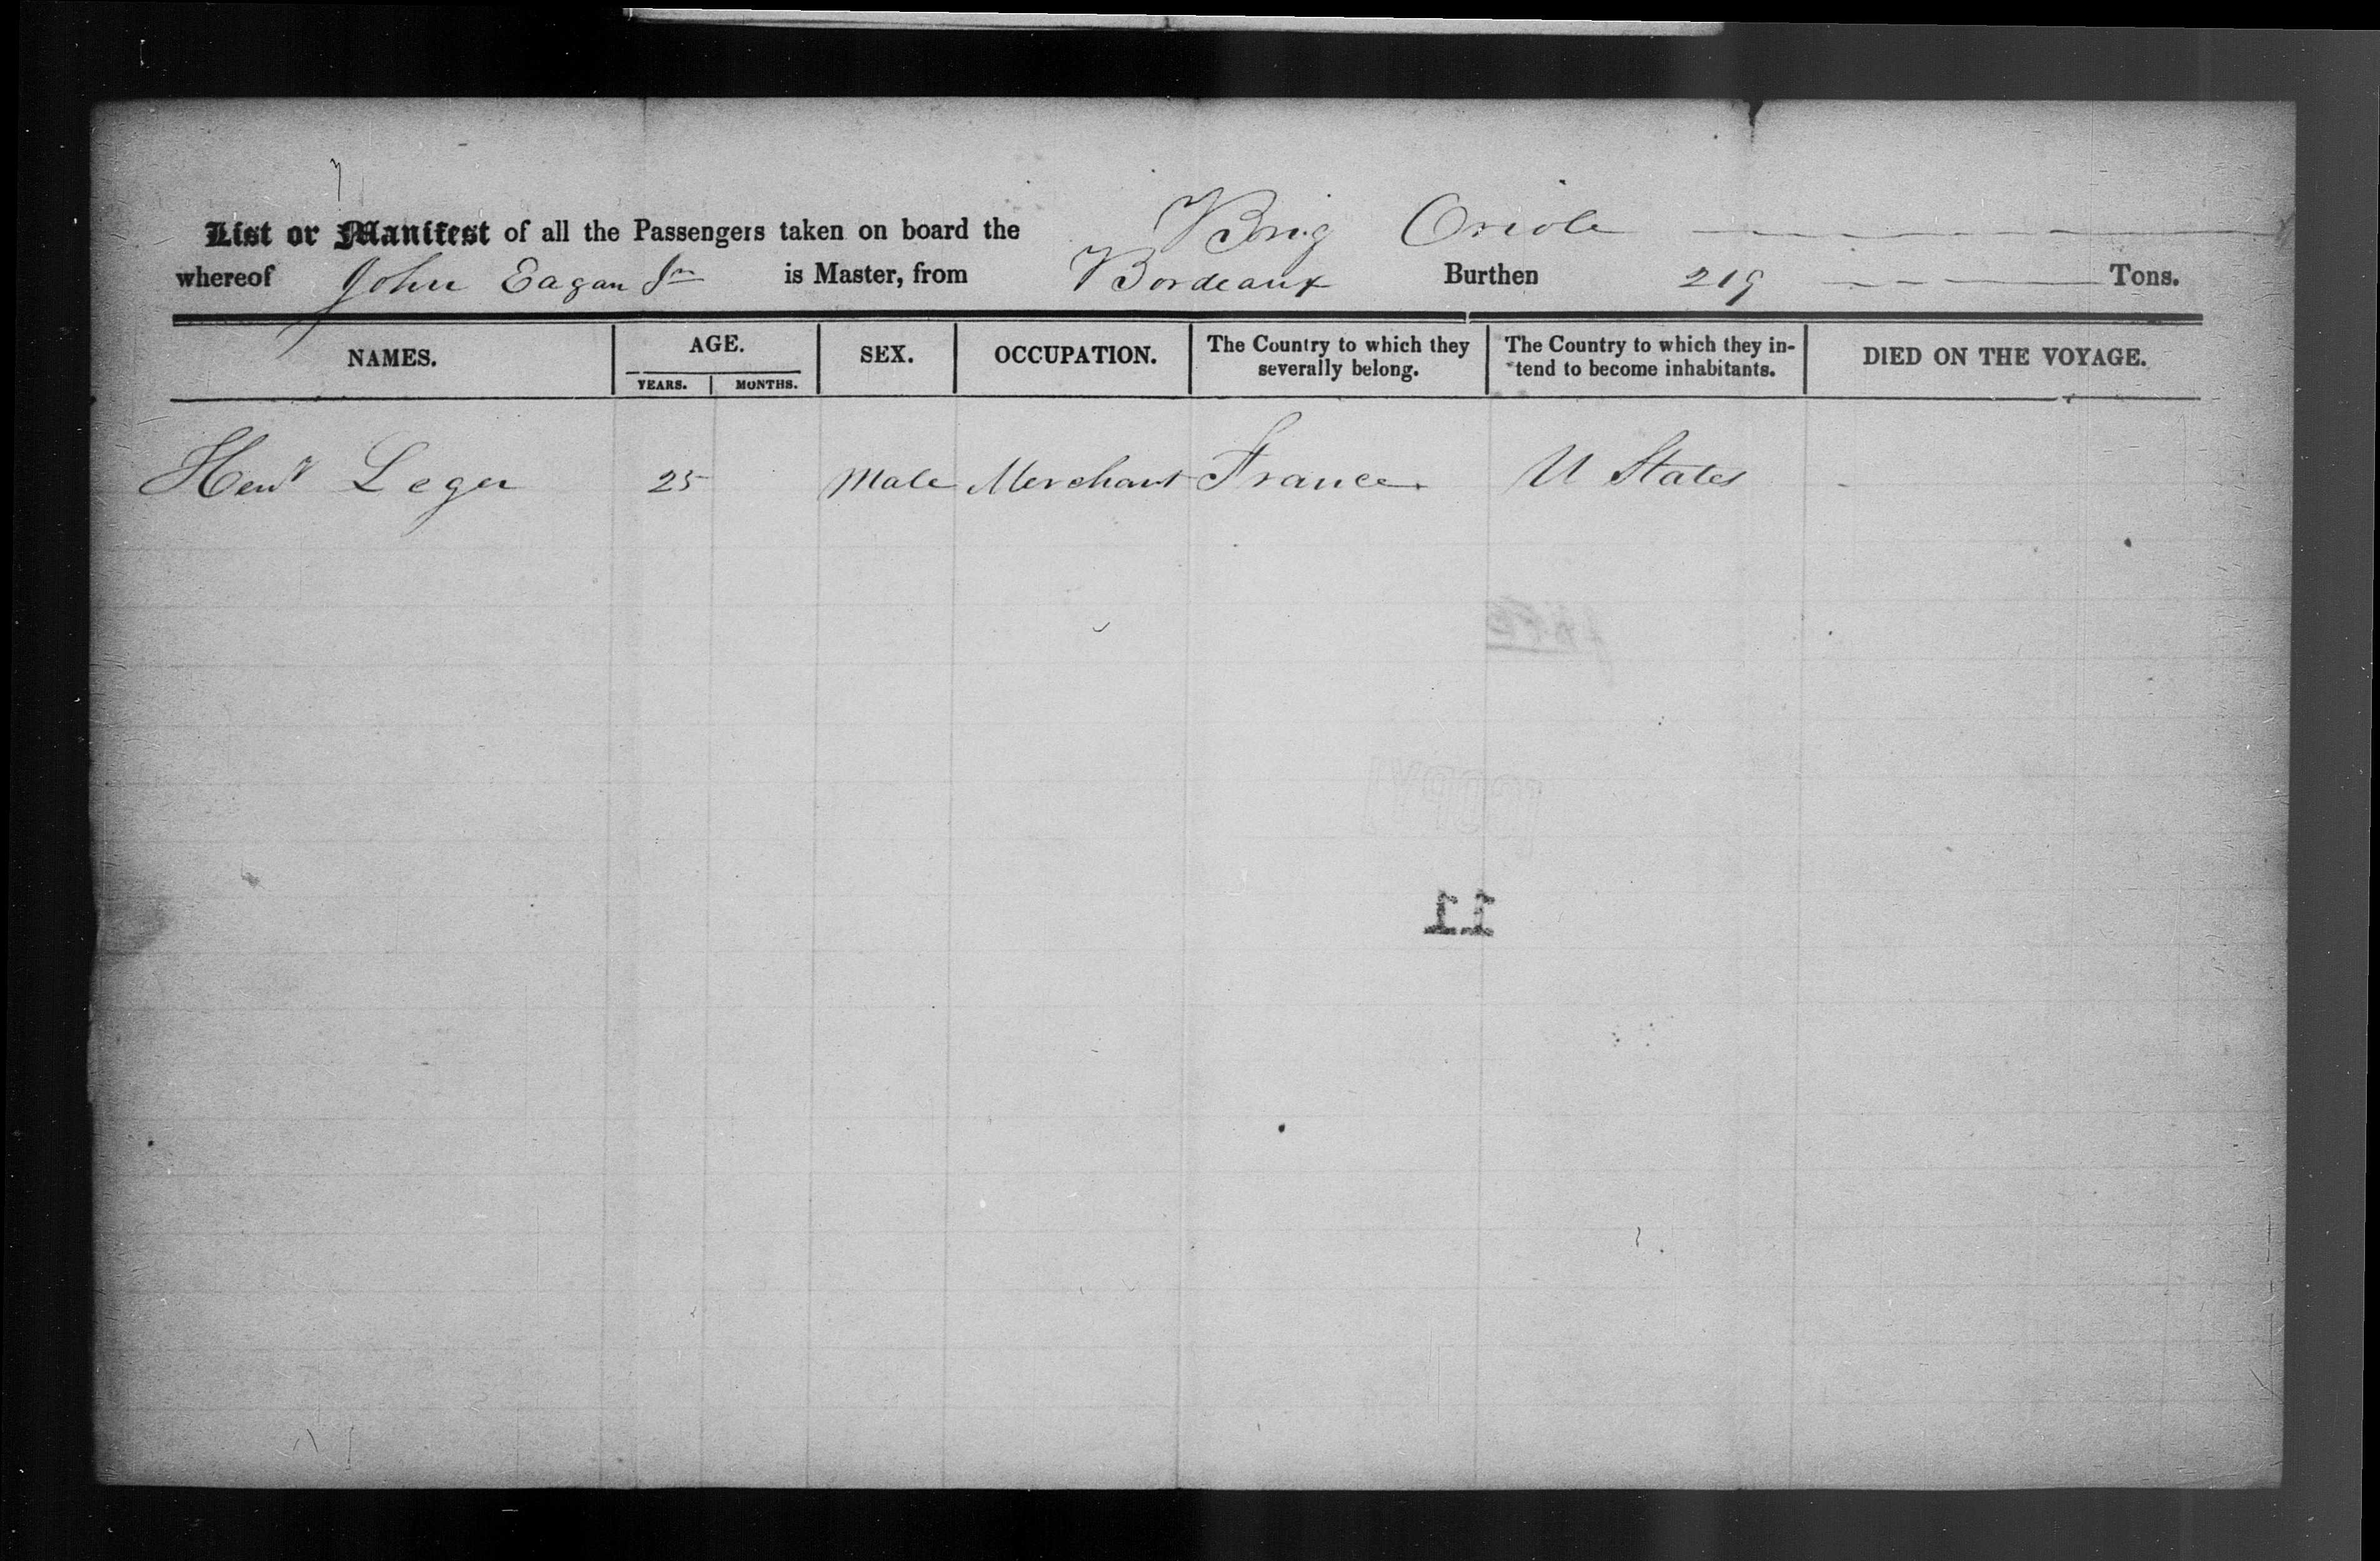 List or Manifest of all the Passengers taken on board the Brig Oriole
whereof John Eagan Jr is Master, from Bordeaux Burthen 219 Tons.
NAMES. AGE. SEX. OCCUPATION. The Country to which they severally belong. The Country to which they in-tend to become inhabitants. DIED ON THE VOYAGE.
YEARS. MONTHS.
Henry Leger 25 Male Merchant France U States -
11